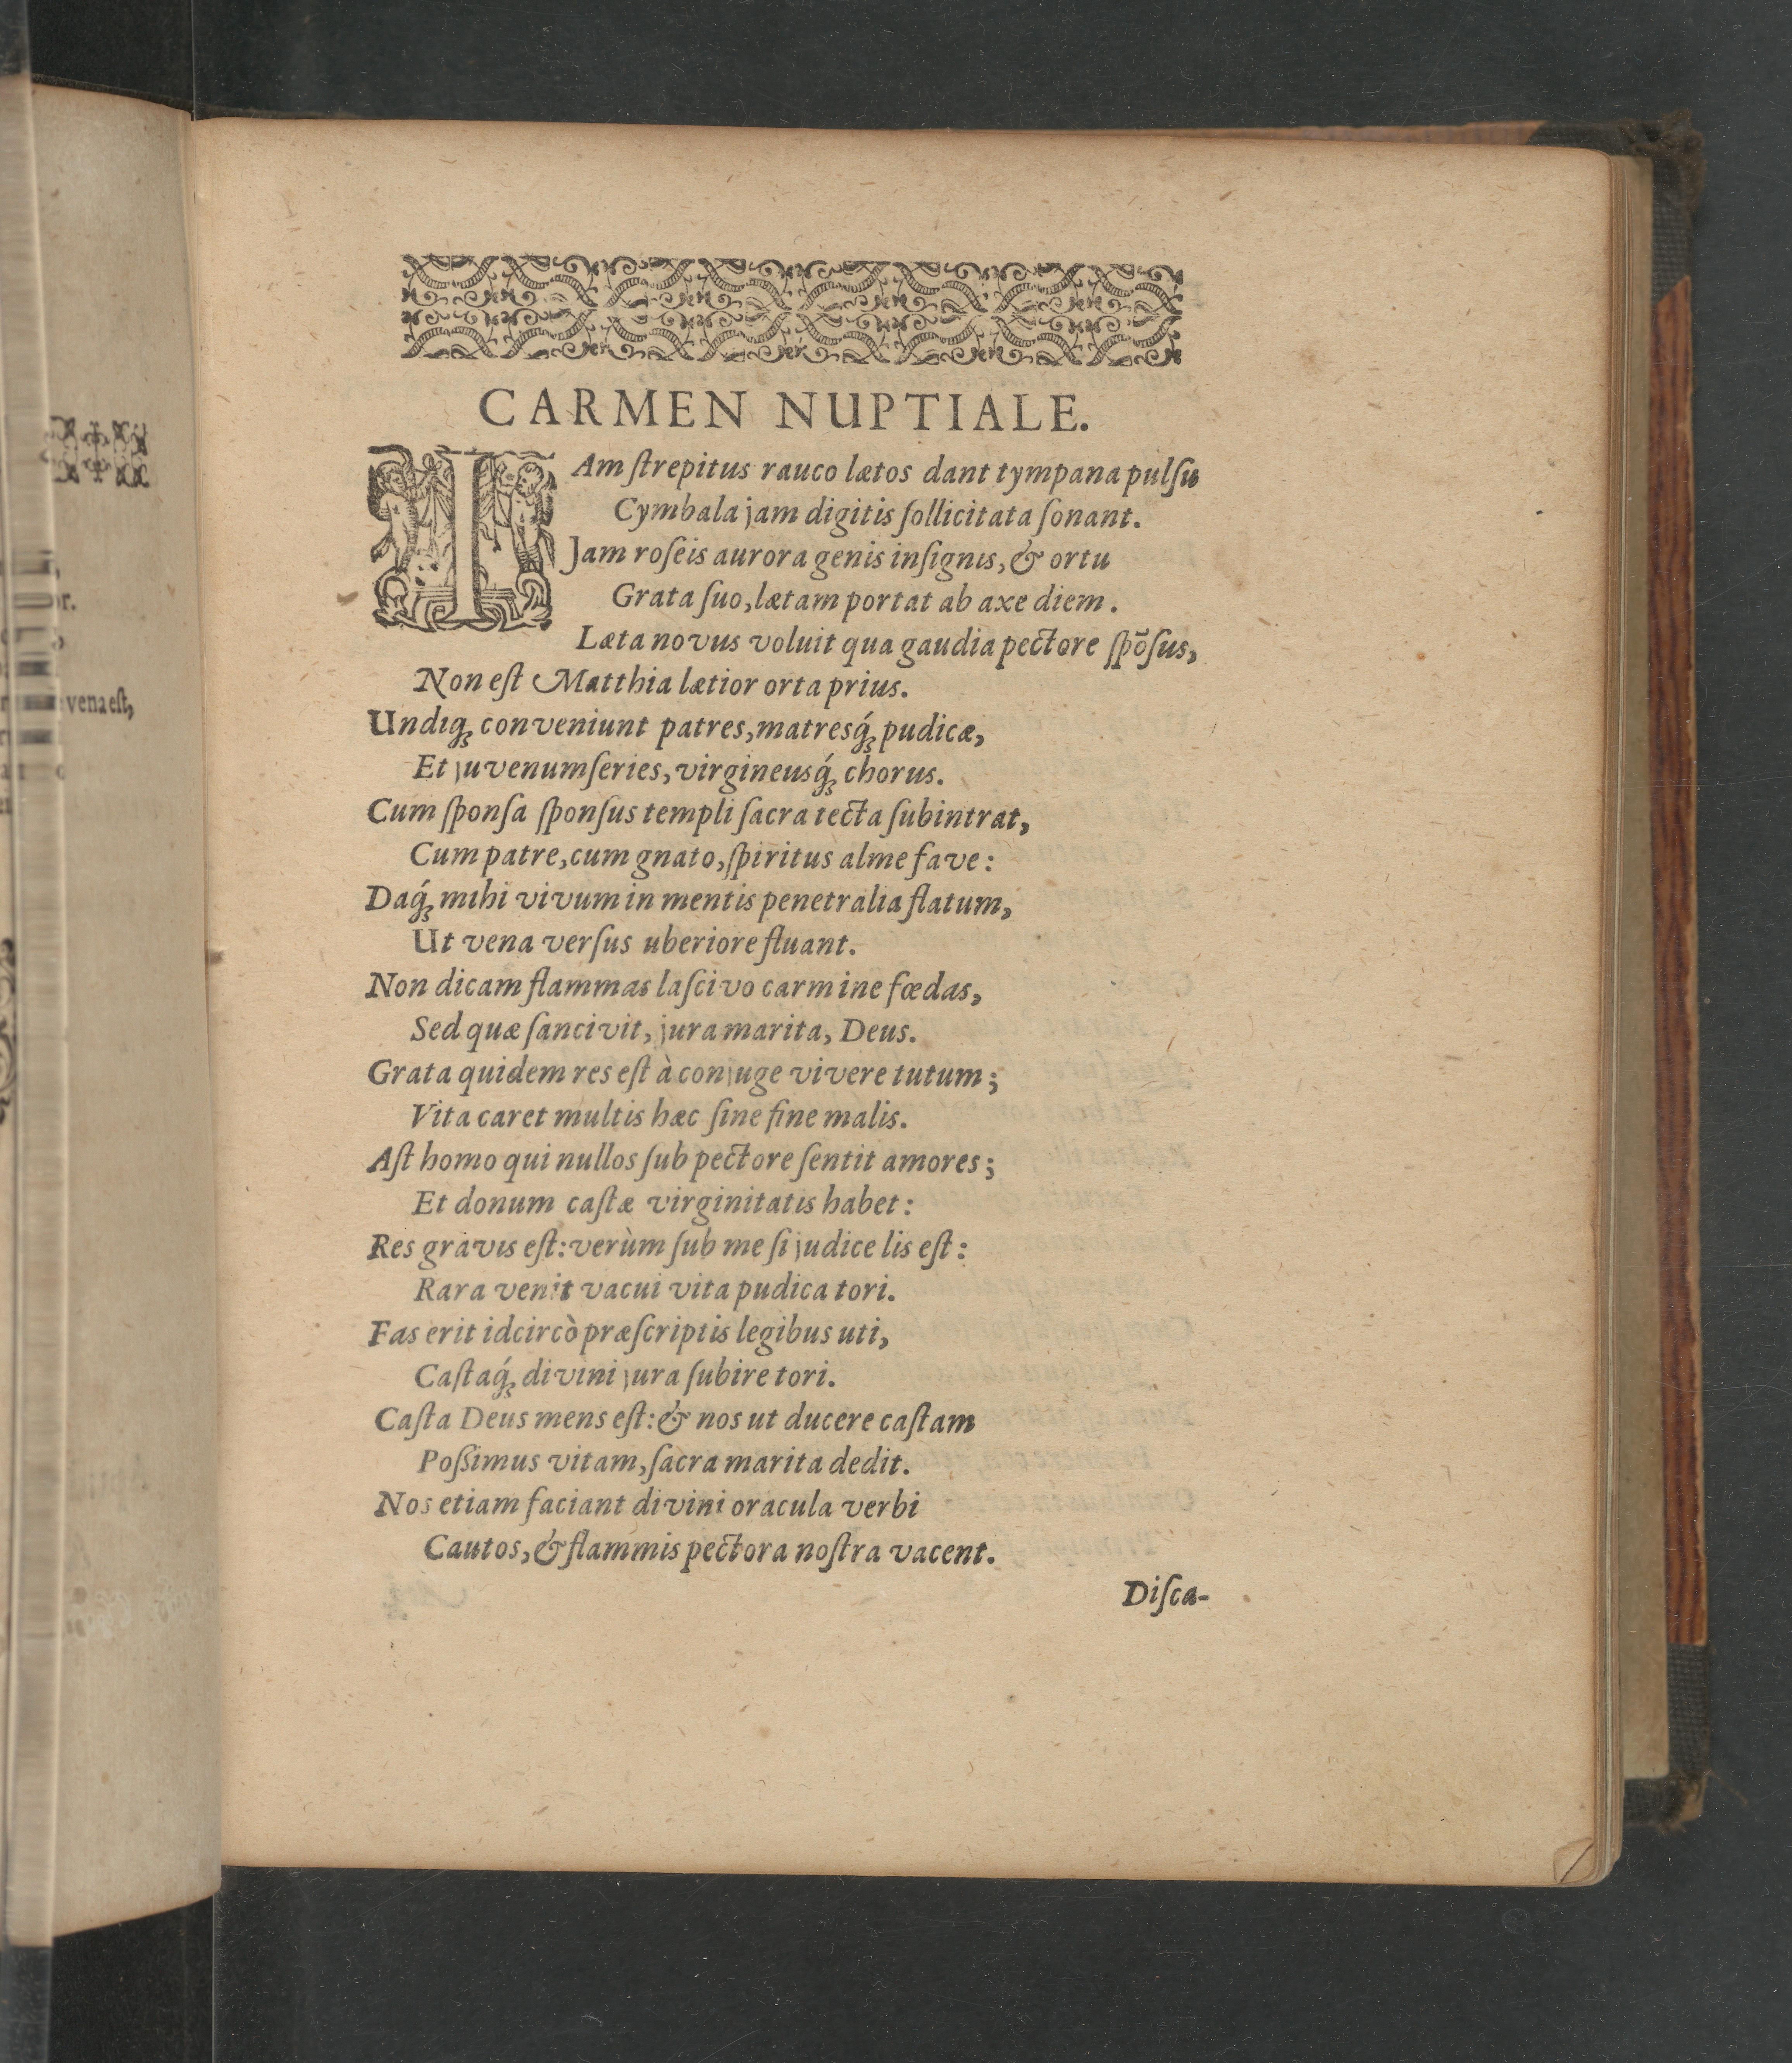 CARMEN NUPTIALE.
IAm ſtrepitus rauco lætos dant tympana pulſu
Cymbala jam digitis ſollicitata ſonant.
Jam roſeis aurora genis inſignis, & ortu
Grata ſuo, lætam portat ab axe diem.
Læta novus voluit qua gaudia pectore ſpõſus,
Non eſt Matthia lætior orta prius.
Undiq́ꝫ conveniunt patres, matresq́ꝫ pudicæ,
Et juvenum ſeries, virgineusq́ꝫ chorus.
Cum ſponſa ſponſus templi ſacra tecta ſubintrat,
Cum patre, cum gnato, ſpiritus alme fave:
Daq́ꝫ mihi vivum in mentis penetralia flatum,
Ut vena verſus uberiore fluant.
Non dicam flammas laſcivo carmine fœdas,
Sed quæ ſancivit, jura marita, Deus.
Grata quidem res eſt à conjuge vivere tutum;
Vita caret multis hæc ſine fine malis.
Aſt homo qui nullos ſub pectore ſentit amores;
Et donum caſtæ virginitatis habet:
Res gravis eſt: verùm ſub me ſi judice lis eſt:
Rara venit vacui vita pudica tori.
Fas erit idcircò præſcriptis legibus uti,
Caſtaq́ꝫ divini jura ſubire tori.
Caſta Deus mens eſt: & nos ut ducere caſtam
Poſſimus vitam, ſacra marita dedit.
Nos etiam faciant divini oracula verbi
Cautos, & flammis pectora noſtra vacent.
Diſca-
or.
vena eſt,